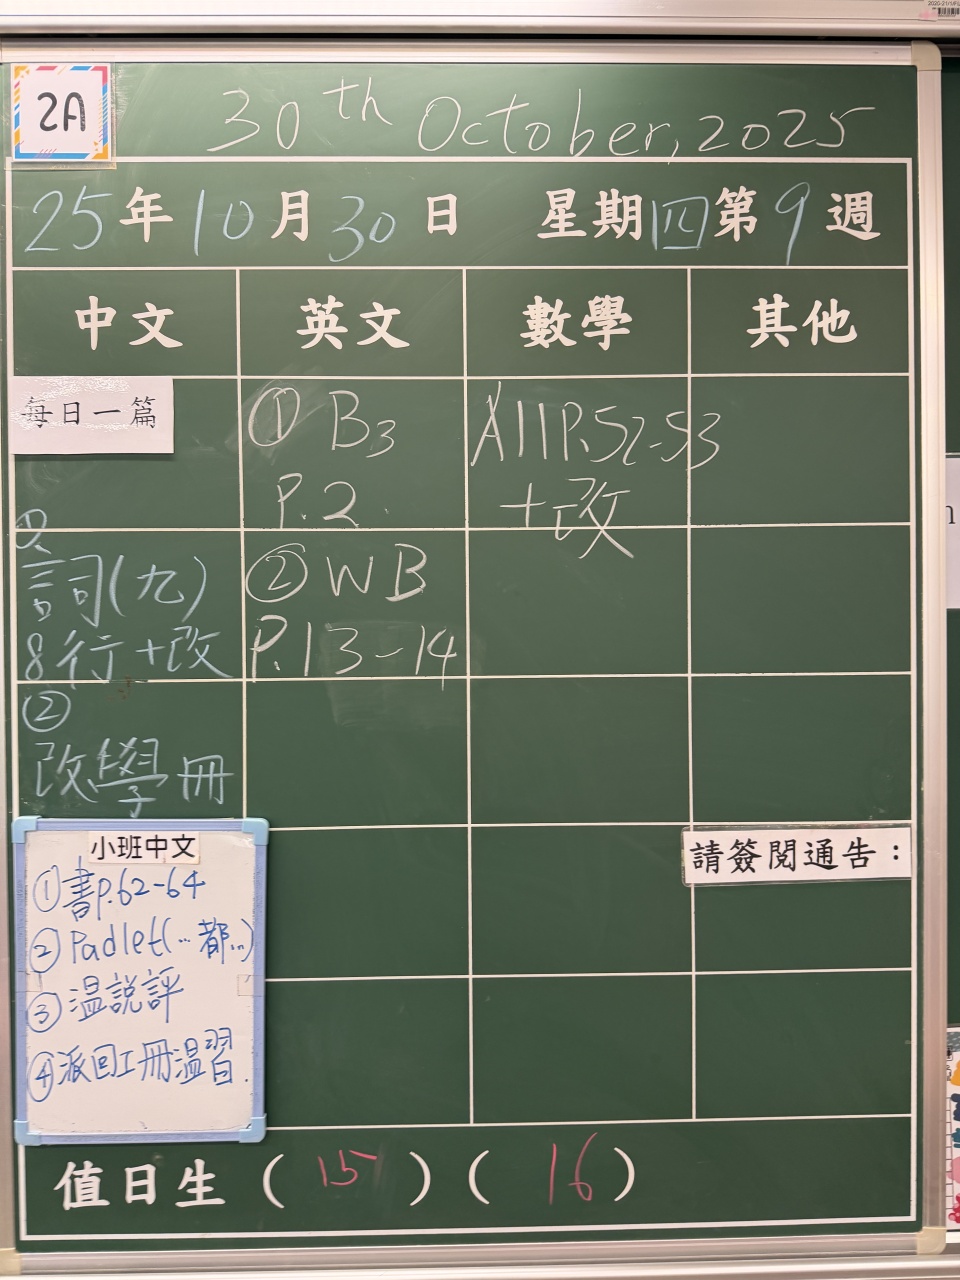 2A
30th October, 2025
25年10月30日 星期四第9週
中文 英文 數學 其他
每日一篇
①
詞(九)
8行+改
②
改學冊
① B3
P.2
② WB
P.13-14
A11P.52-53
+改
小班中文
①書P.62-64
②Padlet(…都…)
③溫說評
④派回工冊溫習.
請簽閱通告：
值日生 (15) (16)